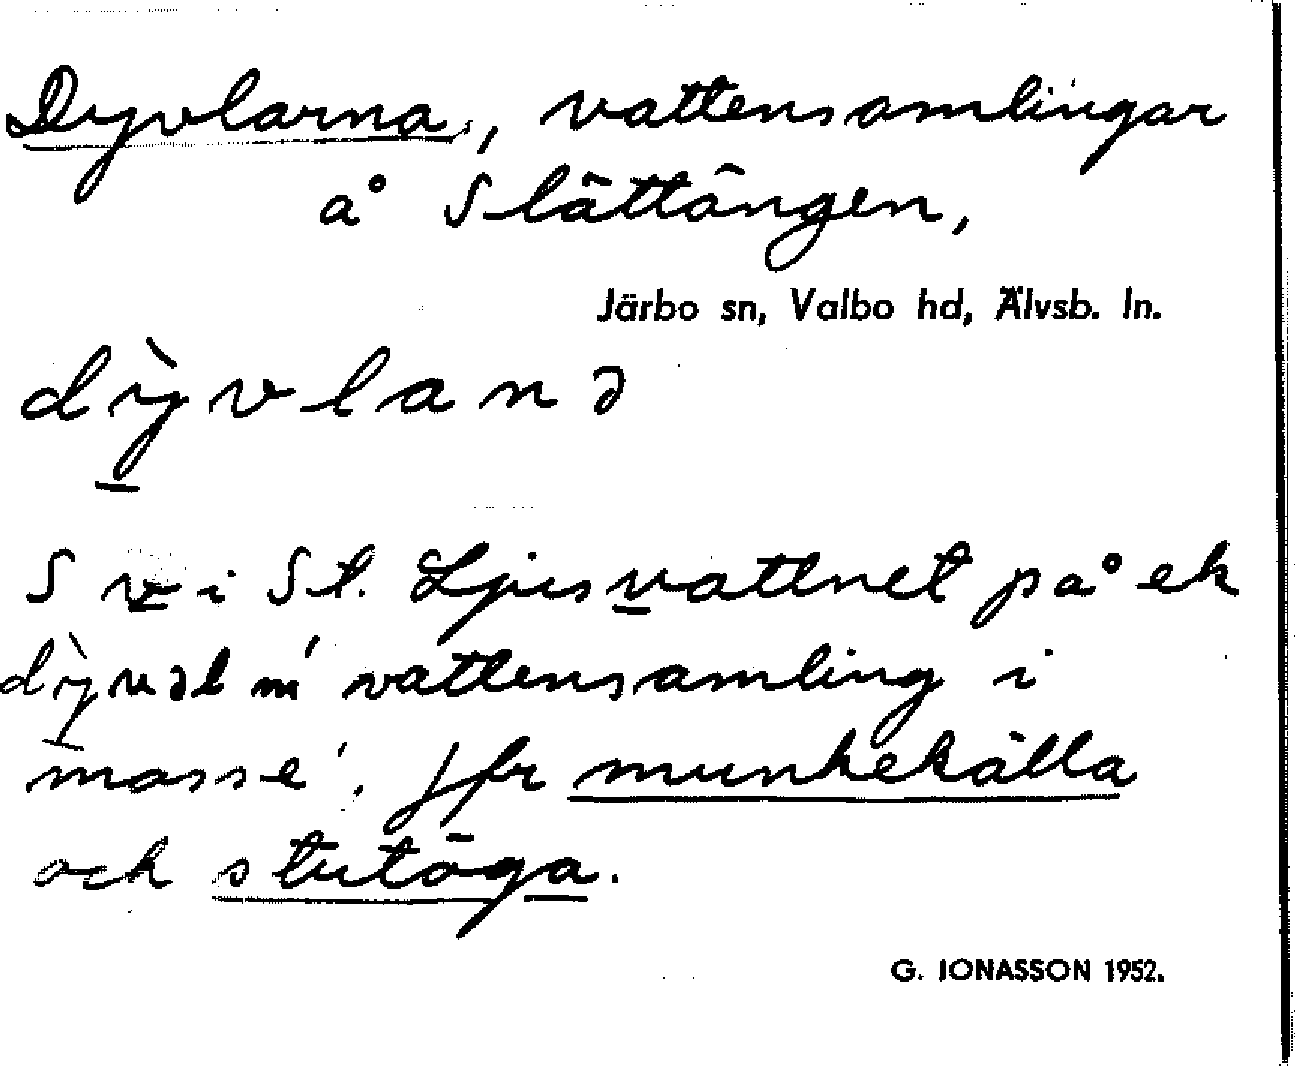 Dyvlarna, vattensamlingar
å Slättängen,
Järbo sn, Valbo hd, Älvsb. ln.
dỳvlanə
S v i St. Ljusvattnet på ek
dỳvəl m 'vattensamling i
mosse'. Jfr munkekälla
och stutöga.
G. IONASSON 1952.